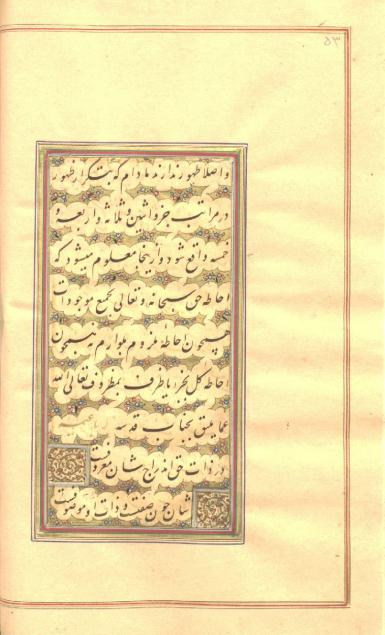 ۵۳
و اصلا ظهور ندارند مادام که بتکرار ظهور
در مراتب جزو اثنین و ثلاثه و اربعه و
خمسه واقع شود و ازینجا معلوم میشود که
احاطه حق سبحانه و تعالی بجمیع موجودات
همچون احاطه ملزوم بلوازم نه همچون
احاطه کل بجزو یا ظرف بمظروف تعالی الله
عما یلیق بجناب قدسه
در ذات حق اندراج شان معروفست
شان چون صفتست و ذات او موصوفست